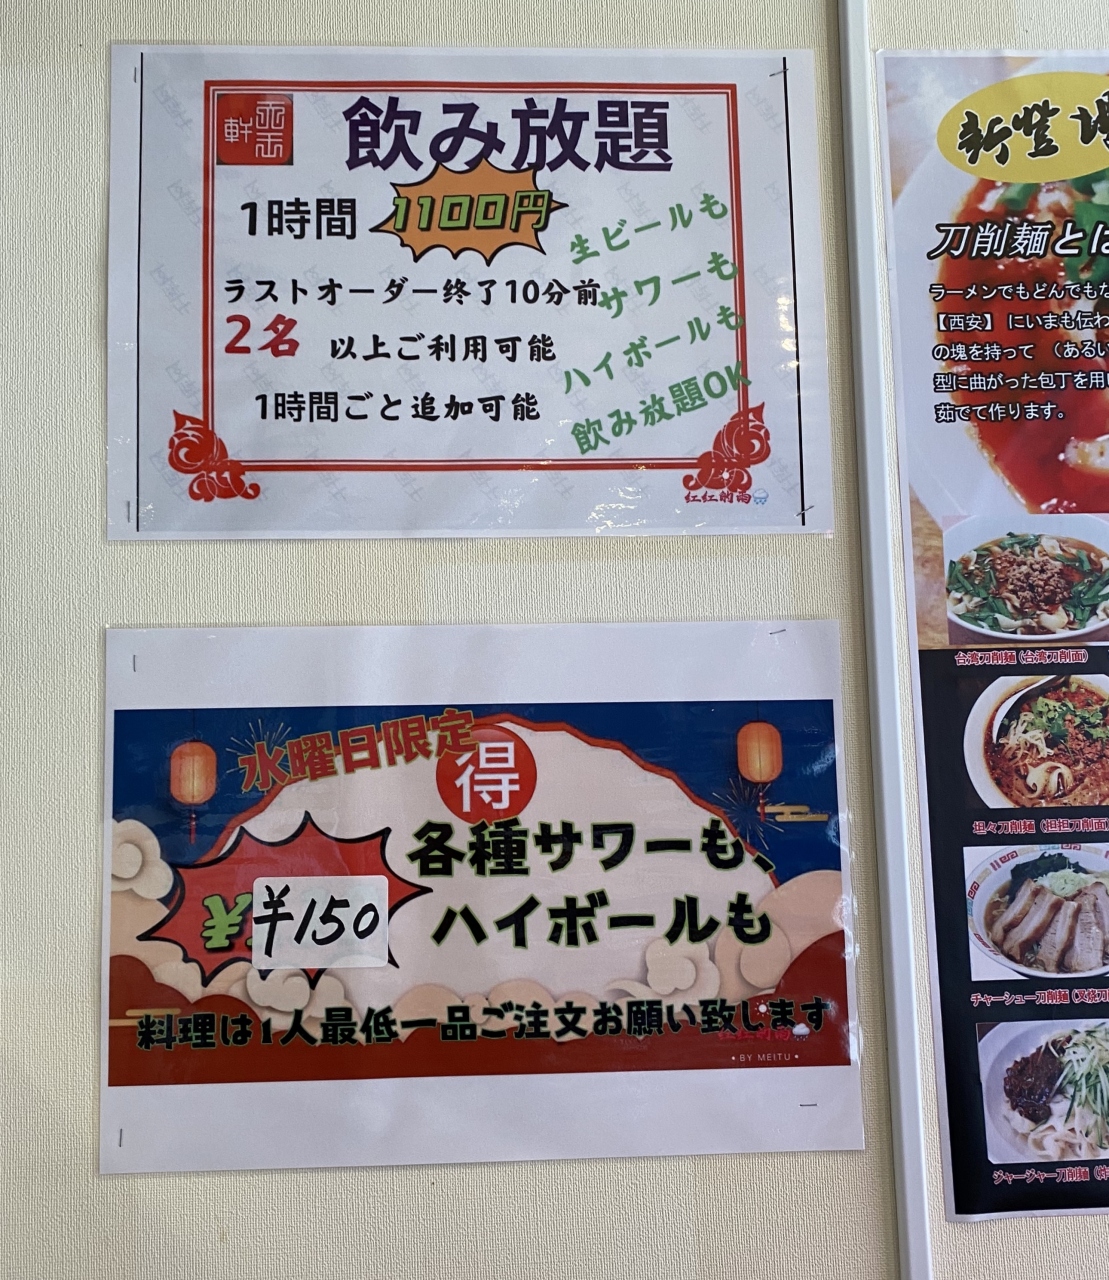 飲み放題
1時間
1100円
ラストオーダー終了10分前
2名 以上ご利用可能
1時間ごと追加可能
生ビールも
サワーも
ハイボールも
飲み放題OK
红红的雨
水曜日限定
得
各種サワーも、
ハイボールも
¥150
料理は1人最低一品ご注文お願い致します
红红的雨
• BY MEITU •
新登場
刀削麺とは
ラーメンでもどんでもな
【西安】 にいまも伝わ
の塊を持って （あるい
型に曲がった包丁を用い
茹でて作ります。
台湾刀削麺（台湾刀削面）
坦々刀削麺（担担刀削面）
チャーシュー刀削麺（叉烧刀
ジャージャー刀削麺（炸